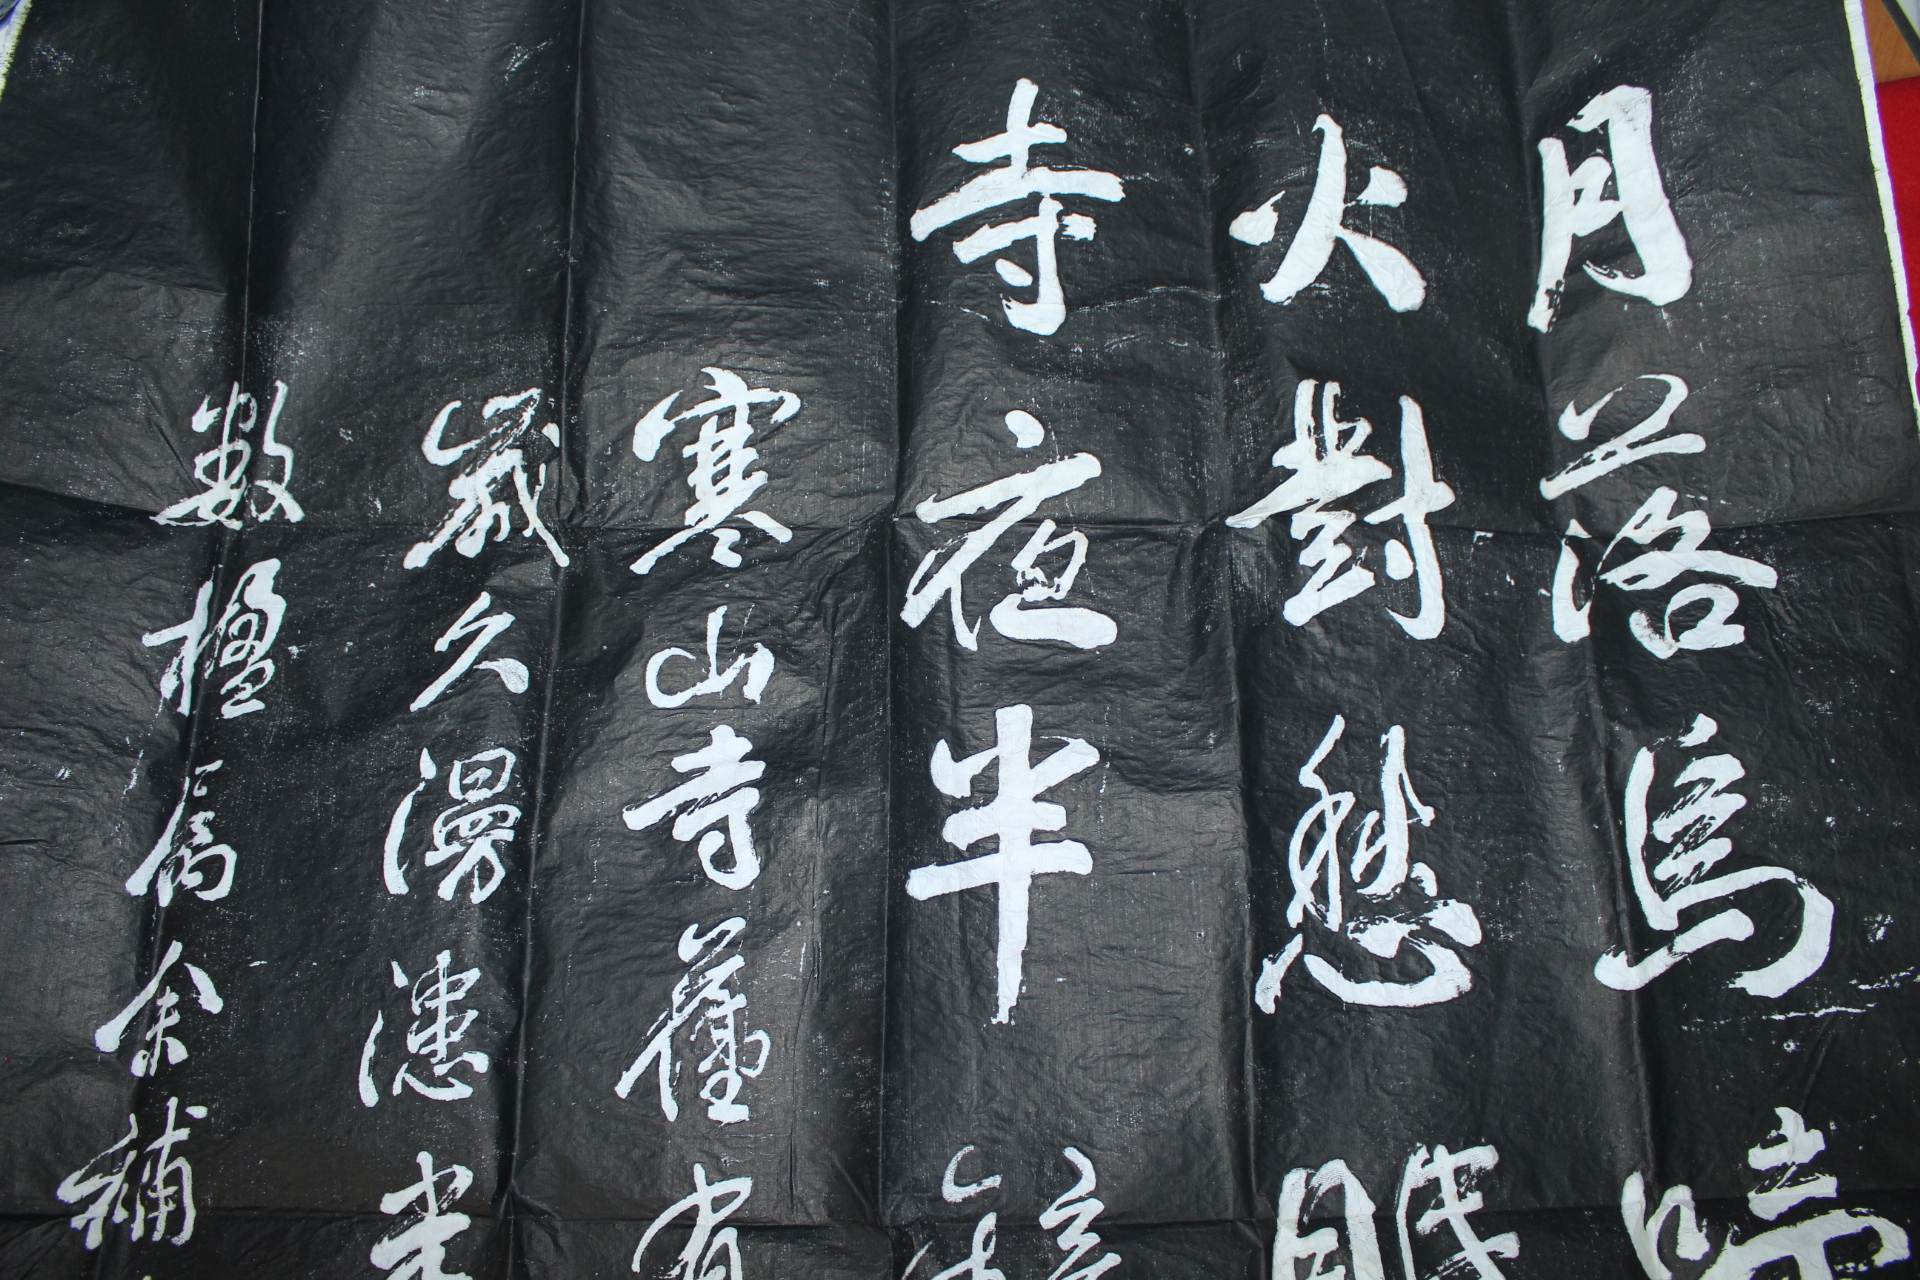 月落烏啼
火對愁眠
寺夜半鐘
寒山寺舊有
歲久漫漶光
數楹屬余補